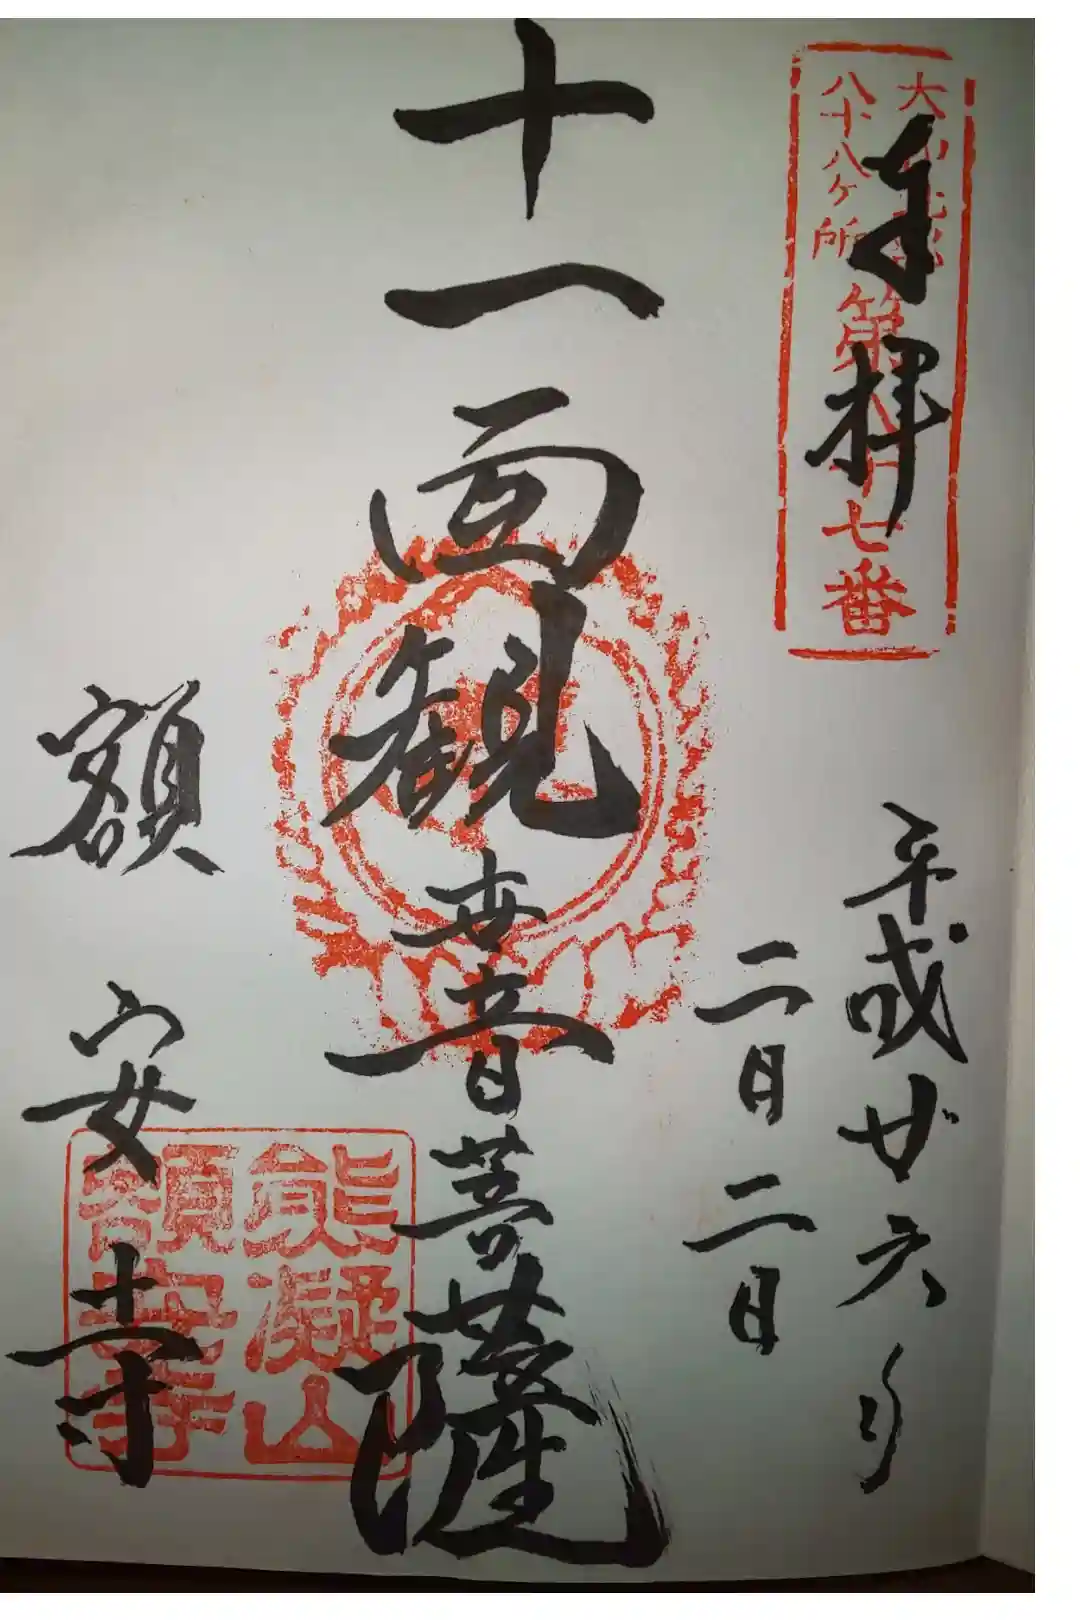 大和北部
八十八ヶ所
第八十七番
奉拝
平成廿六年
二月二日
十一面観世音菩薩
額安寺
熊凝山
額安寺